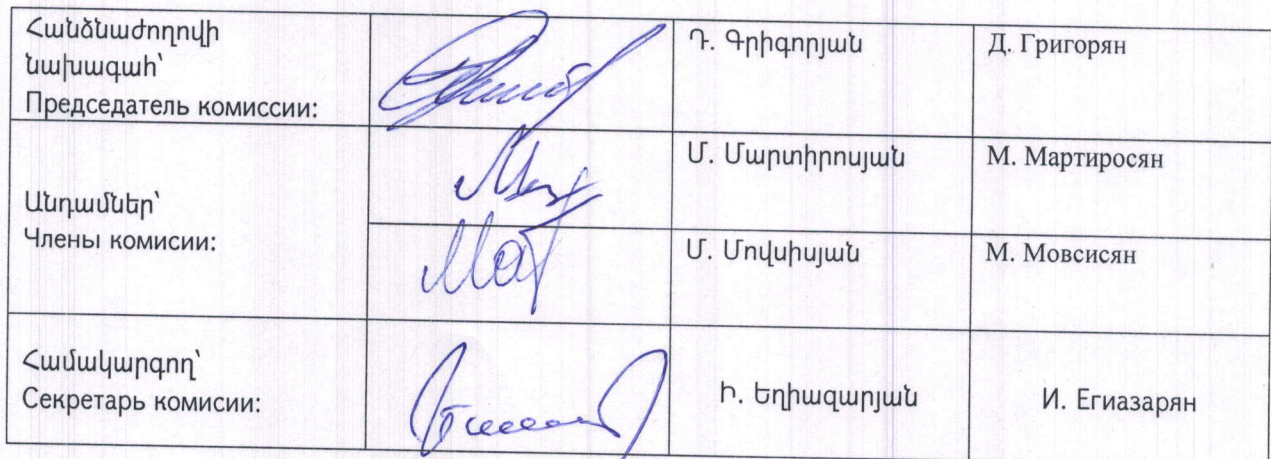 Հանձնաժողովի
նախագահ՝
Председатель комиссии:
Դ. Գրիգորյան
Д. Григорян
Անդամներ՝
Члены комисии:
Մ. Մարտիրոսյան
М. Мартиросян
Մ. Մովսիսյան
М. Мовсисян
Համակարգող՝
Секретарь комисии:
Ի. Եղիազարյան
И. Егиазарян